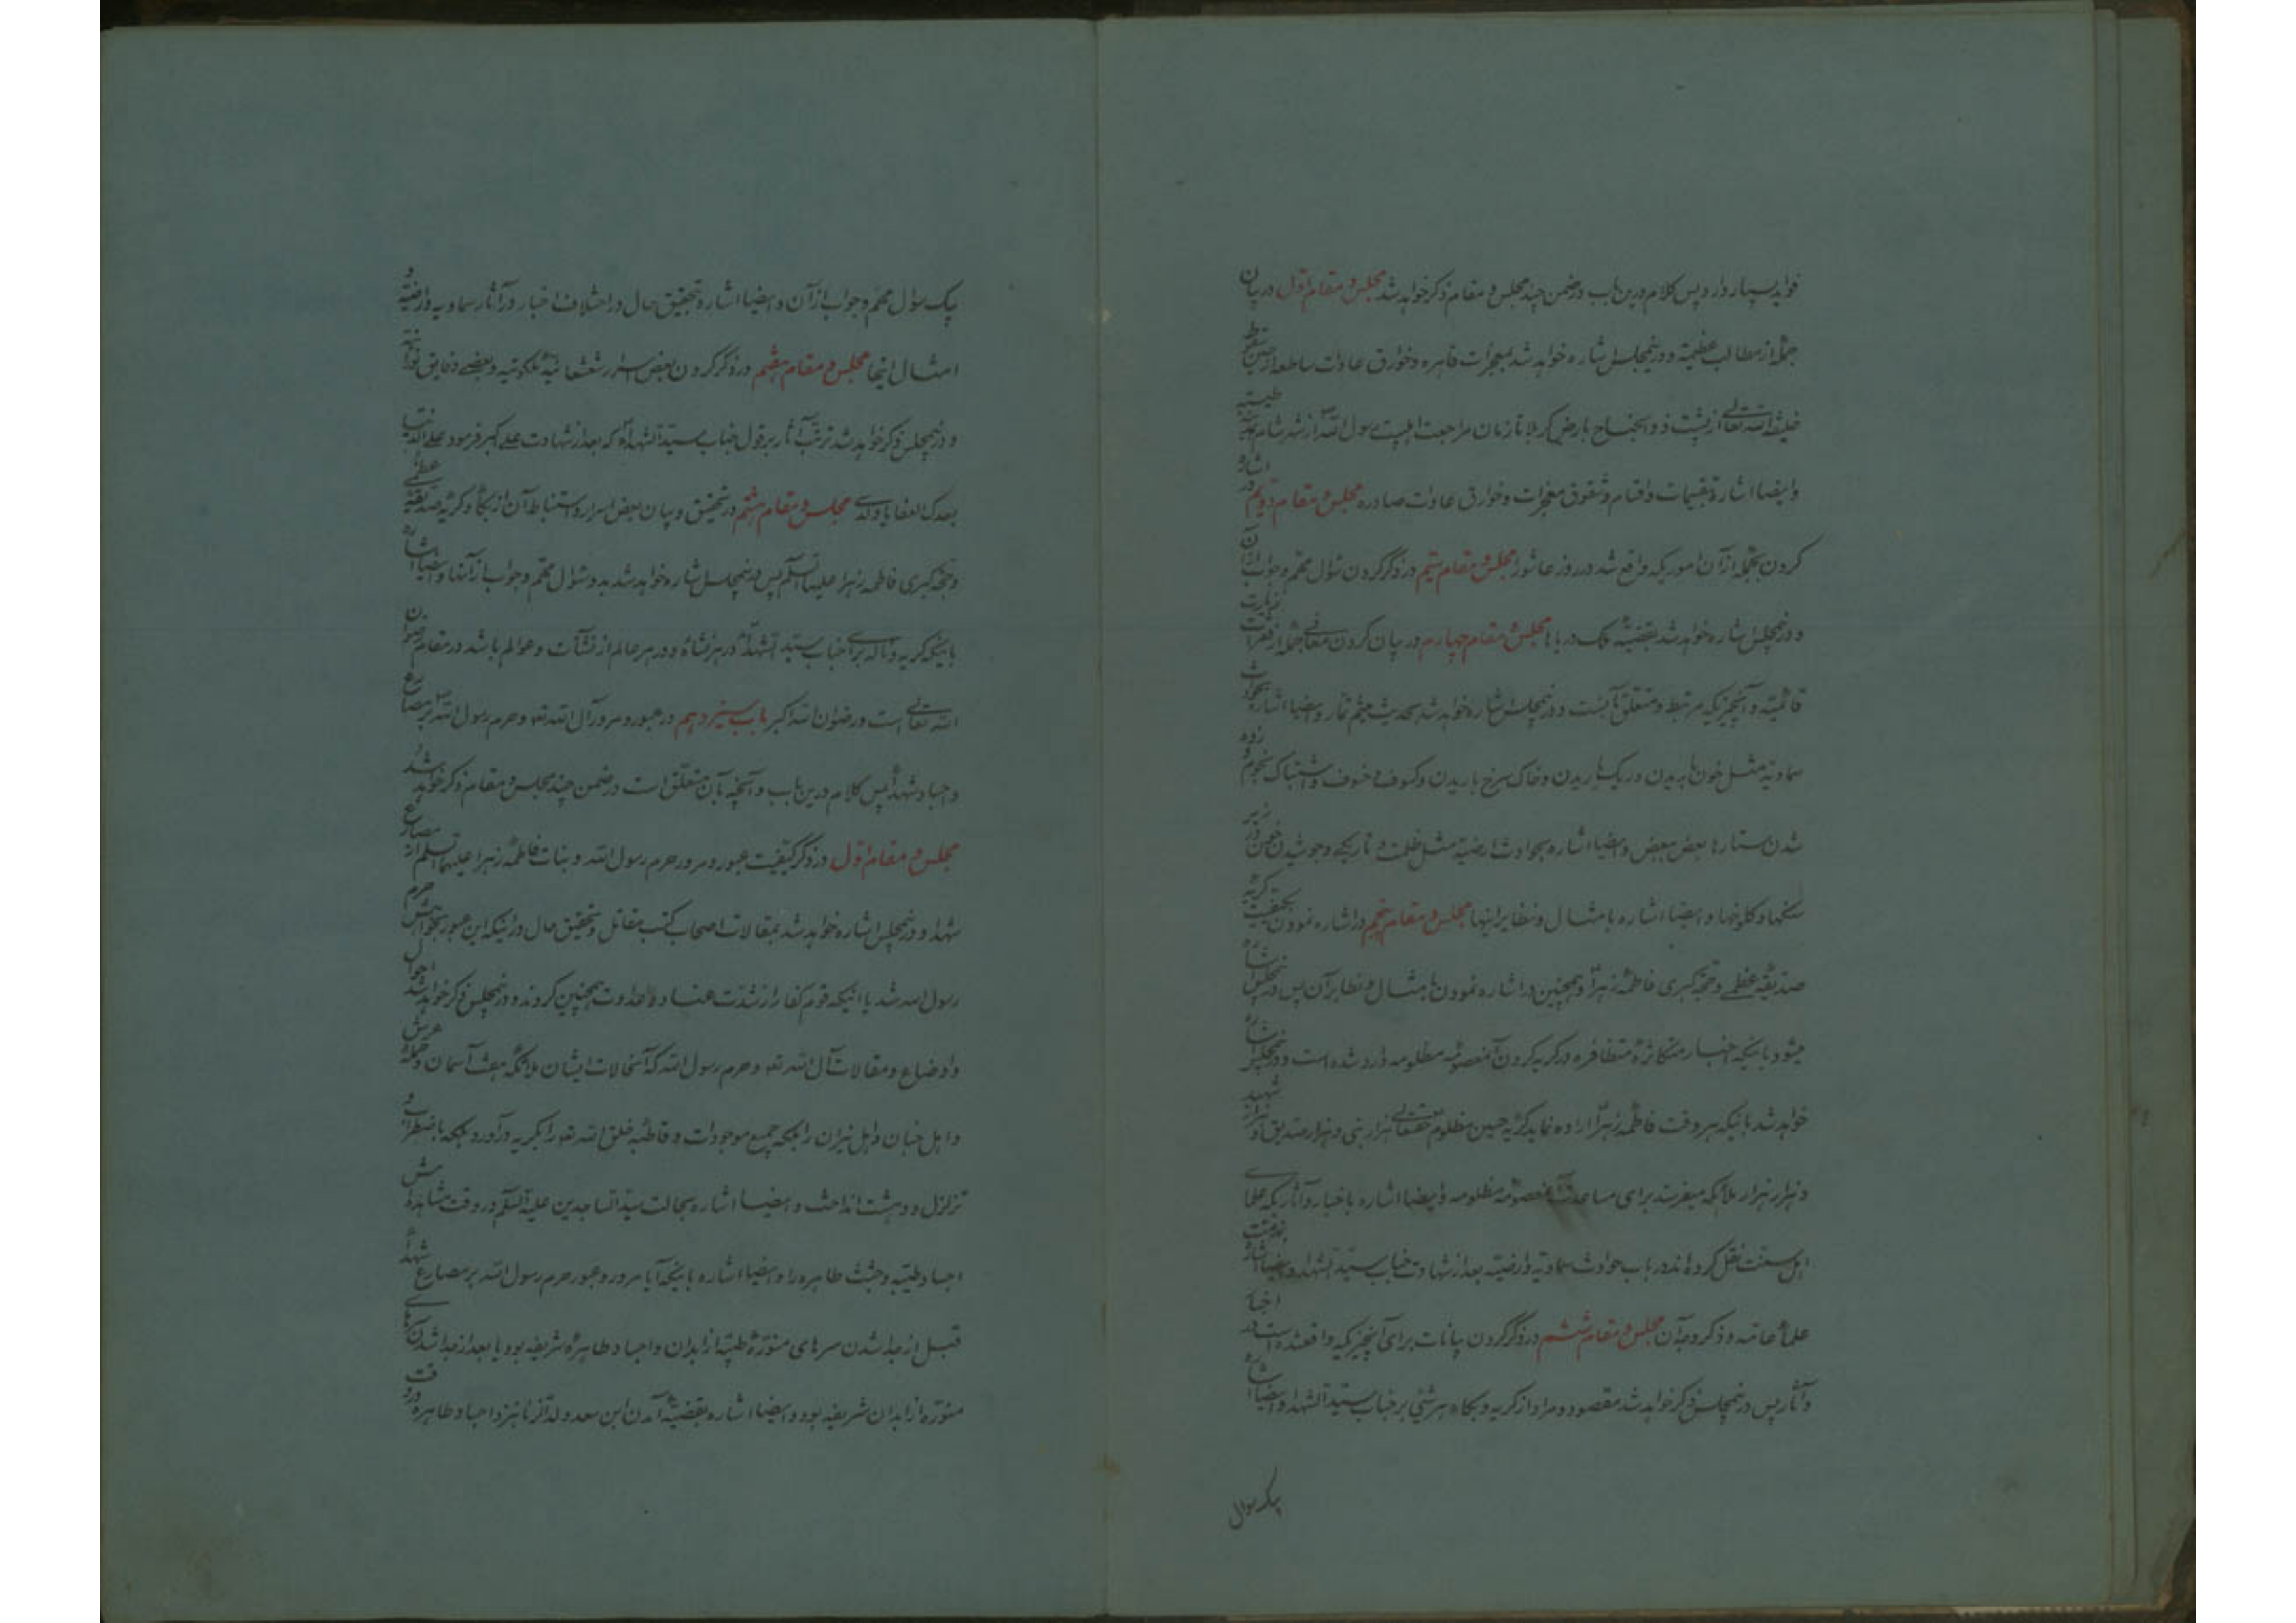 فواید بسیار دارد پس کلام درین باب در ضمن چند مجلس و مقام ذکر خواهد شد مجلس و مقام اول در بیان
جمله از مطالب عظیمه و درینمجلس اشاره خواهد شد بمعجزات قاهره و خوارق عادات ساطعه از حین سقوط
خلیفة الله تعالی از پشت ذو الجناح بارض کربلا تا زمان مراجعت اهلبیت رسول الله از شام بمدینه طیبه
و ایضا اشاره بتقسیمات و اقسام و شقوق معجزات و خوارق عادات صادره مجلس و مقام دویم در اشاره
کردن بجمله از آن اموریکه واقع شد در روز عاشورا مجلس و مقام سیم در ذکر کردن سؤال مهم و جواب از آن
و درینمجلس اشاره خواهد شد بقضیه ملک دریاها مجلس و مقام چهارم در بیان کردن معانی جمله از فقرات زیارت
قائمیه و آنچیزیکه مرتبط و متعلق بآنست و درینمجلس اشاره خواهد شد بحدیث میثم تمار و ایضا اشاره بحوادث
سماویه مثل خون باریدن و ریک باریدن و خاک سرخ باریدن و کسوف و خسوف و اشتباک نجوم و زده
شدن ستارها بعض ببعض و ایضا اشاره بحوادث ارضیه مثل ظلمت و تاریکی و جوشیدن خون از زیر
سنکها و کلوخها و ایضا اشاره بامثال و نظایر اینها مجلس و مقام پنجم در اشاره نمودن بکیفیت کریه
صدیقه عظمی و حجه کبری فاطمه زهرا و همچنین در اشاره نمودن بامثال و نظایر آن پس درینمجلس اشاره
میشود باینکه اخبار متکاثره متظافره در کریه کردن آنمعصومه مظلومه وارد شده است و درینمجلس اشاره
خواهد شد باینکه هر وقت فاطمه زهرا اراده نماید کریه حسین مظلوم حقتعالی هزار نبی و هزار صدیق و هزار شهید
و هزار هزار ملائکه میفرستد برای مساعدت آنمعصومه مظلومه و ایضا اشاره باخبار و آثاریکه علمای
اهل سنت نقل کرده‌اند در باب حوادث سماویه و ارضیه بعد از شهادت جناب سید الشهدا و ایضا اشاره
علماء عامه و ذکر وجه آن مجلس و مقام ششم در ذکر کردن بیانات برای آنچیزیکه واقعشده است در اخبار
و آثار پس درینمجلس ذکر خواهد شد مقصود و مراد از کریه و بکاء هر شیئی بر جناب سید الشهدا و ایضا اشاره
بیک سؤال
بیک سؤال مهم و جواب از آن و ایضا اشاره بتحقیق حال در اختلاف اخبار در آثار سماویه و ارضیه و
امثال اینها مجلس و مقام هفتم در ذکر کردن بعض اسرار شعشعانیه ملکوتیه و بعضی دقایق
و درینمجلس ذکر خواهد شد ترتب آثار بر قول جناب سید الشهداء که بعد از شهادت علی اکبر فرمود علی الدنیا
بعدک العفا یا ولدی مجلس و مقام هشتم در تحقیق و بیان بعض اسرار و استنباط آن از بکاء و کریه صدیقه عظمی
و حجه کبری فاطمه زهرا علیها السلم پس درینمجلس اشاره خواهد شد بدو سؤال مهم و جواب از آنها و ایضا اشاره
باینکه کریه و ناله برای جناب سید الشهدا در هر نشاة و در هر عالم از نشآت و عوالم باشد در مقام رضوان
الله تعالی است و رضوان الله اکبر باب سیزدهم در عبور و مرور آل الله تعه و حرم رسول الله بر مصارع
و اجساد شهدا پس کلام درین باب و آنچه بآن متعلق است در ضمن چند مجلس و مقام ذکر خواهد شد
مجلس و مقام اول در ذکر کیفیت عبور و مرور حرم رسول الله و بنات فاطمه زهرا علیها السلم از مصارع
شهدا و درینمجلس اشاره خواهد شد بمقالات اصحاب کتب مقاتل و تحقیق حال در اینکه این عبور بخواهش حرم
رسول الله شد یا اینکه قوم کفار از شدت عناد و عداوت همچنین کردند و درینمجلس ذکر خواهد شد احوال
و اوضاع و مقالات آل الله تعه و حرم رسول الله که آنحالات ایشان ملائکه هفت آسمان و حمله عرش
و اهل جنان و اهل نیران را بلکه جمیع موجودات و قاطبه خلق الله تعه را بکریه درآورد بلکه باضطراب و
تزلزل و دهشت انداخت و ایضا اشاره بحالت سید الساجدین علیه السلم در وقت مشاهده‌اش
اجساد طیبه و جثث طاهره را و ایضا اشاره باینکه آیا مرور و عبور حرم رسول الله بر مصارع شهدا
قبل از جدا شدن سرهای منوره طیبه از ابدان و اجساد طاهره شریفه بود یا بعد از جدا شدن سرهای
منوره از ابدان شریفه بود و ایضا اشاره بقضیه آمدن ابن سعد ولد الزنا نزد اجساد طاهره در وقت